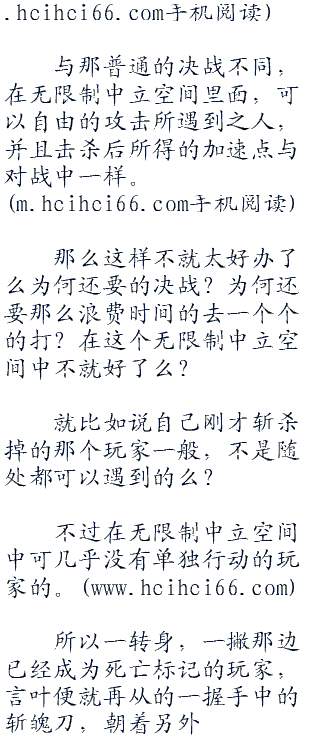 .hcihci66.com手机阅读)
与那普通的决战不同，
在无限制中立空间里面，可
以自由的攻击所遇到之人，
并且击杀后所得的加速点与
对战中一样。
(m.hcihci66.com手机阅读)
那么这样不就太好办了
么为何还要的决战？为何还
要那么浪费时间的去一个个
的打？在这个无限制中立空
间中不就好了么？
就比如说自己刚才斩杀
掉的那个玩家一般，不是随
处都可以遇到的么？
不过在无限制中立空间
中可几乎没有单独行动的玩
家的。(www.hcihci66.com)
所以一转身，一撇那边
已经成为死亡标记的玩家，
言叶便就再从的一握手中的
斩魄刀，朝着另外